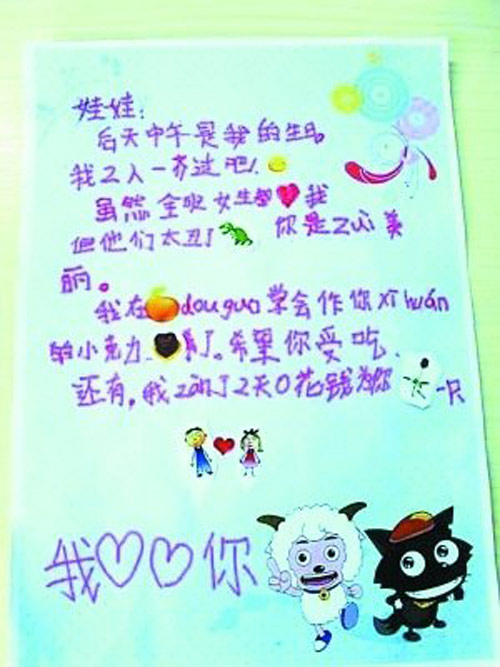 娃娃：
后天中午是我的生日。
我2人一齐过吧！
虽然全班女生都❤我
但他们太丑了 你是Zuì美
丽。
我在 douguo 学会作你 xǐ huán
的小克力 了。希望你受吃.
还有，我zǎn了2天0花钱为你 一只
我♡♡你